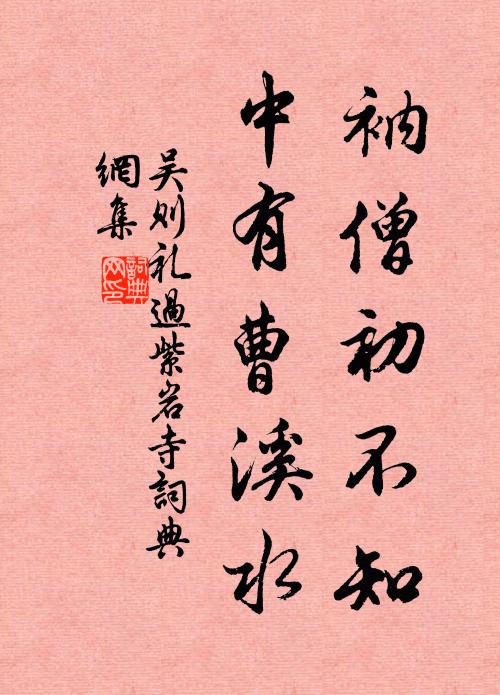 衲僧初不知
中有曹溪水
吴则礼過紫岩寺詞典
網集
詞典網印